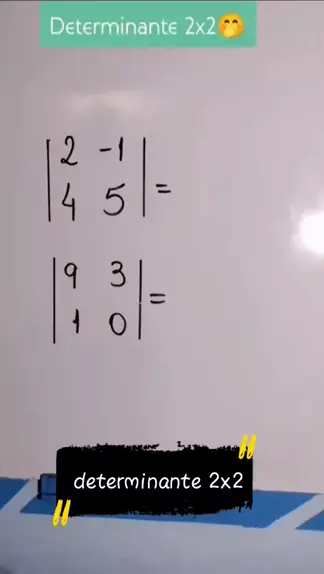 Determinante 2x2🤭
2 -1
4 5 =
9 3
1 0 =
determinante 2x2